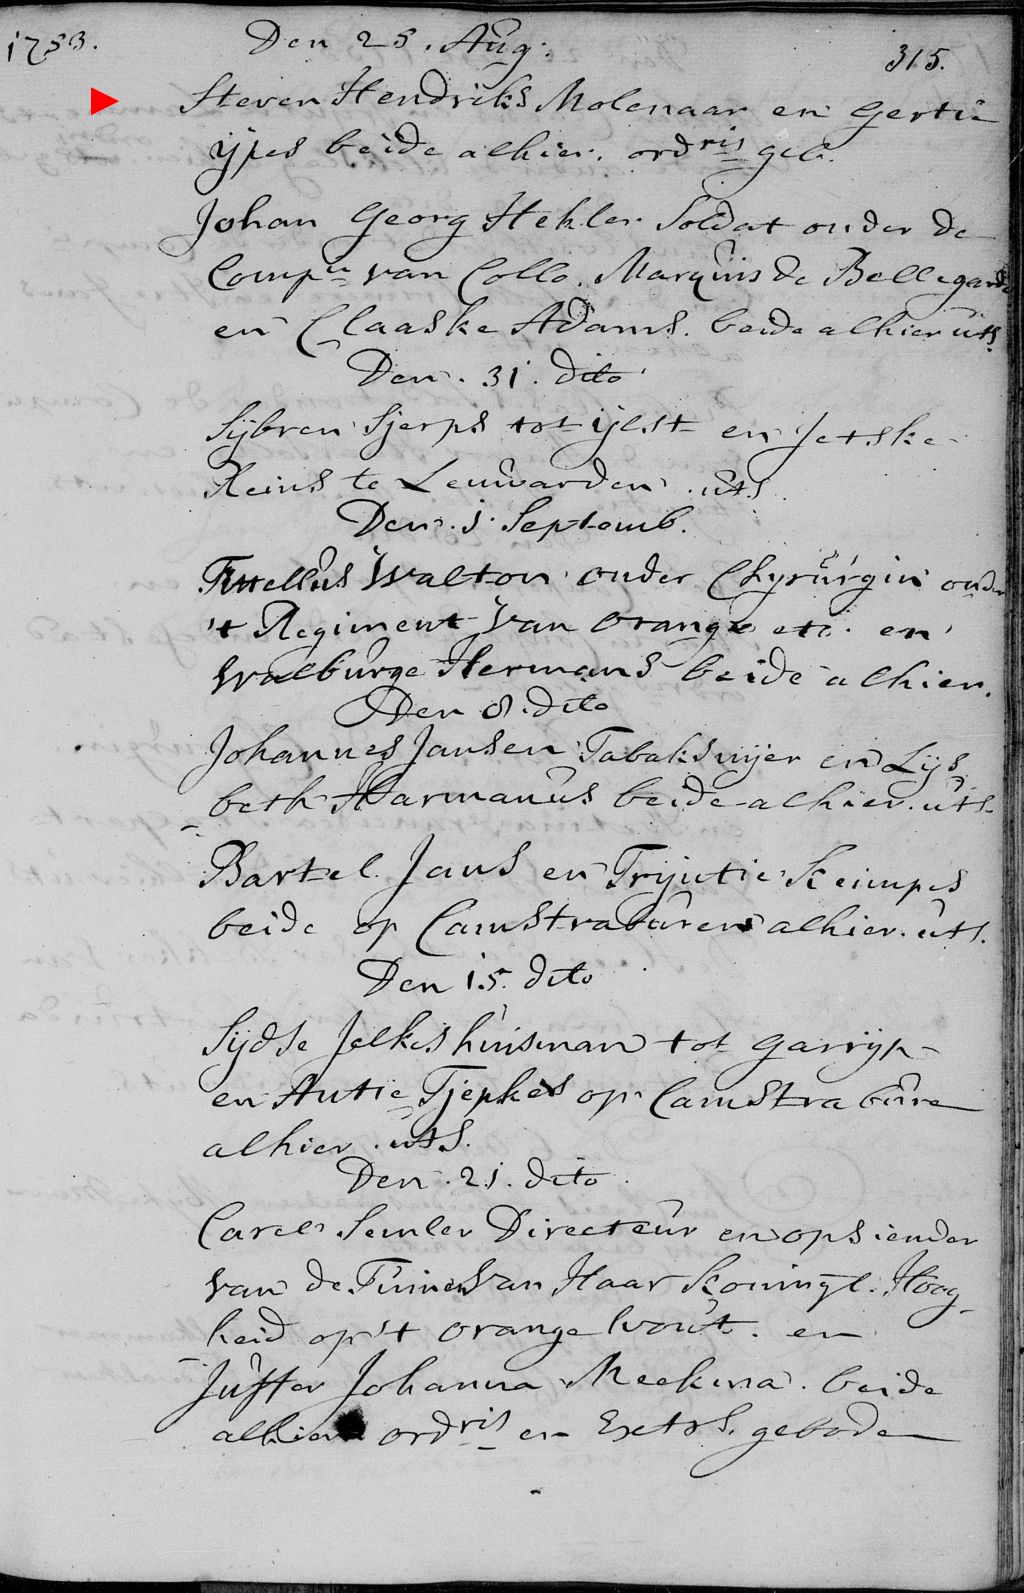 1753. Den 25. Aug: 315.
Steven Hendriks Molenaar en Gertie
ijpes beide alhier. ordris geb.
Johan Georg Hekler Soldat onder de
Compie van Collo. Marquis de Bellegarde
en Claaske Adams. beide alhier uts.
Den. 31. dito
Sijbren Sjerps tot ijlst en Jetske
Reins te Leuwarden. uts
Den. 1. Septemb.
Walton onder Chyrurgin onder
't Regiment van Orange etc. en
Walburge Hermans beide alhier.
Den 8. dito
Johannes Jansen Tabaksnijer en Lijs
beth Harmanus beide alhier. uts.
Bartel Jans en Trijntie Keimpes
beide op Camstraburen alhier. uts.
Den 15. dito
Sijdse Jelkes huisman tot Garrijp
en Antie Tjepkes op Camstrabure
alhier. uts.
Den. 21. dito
Carel Semler Directeur en opsiender
van de Tuinen van Haar Koningl. Hoog
heid op't Orange Wout. en
Juffer Johanna Meekma. beide
alhier ordris en Extos. gebode